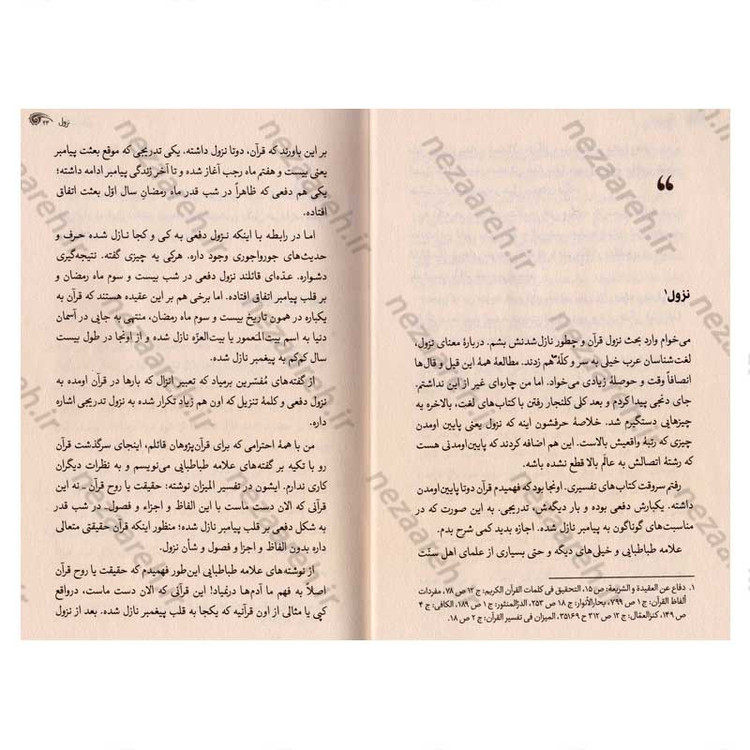 ❞
نزول۱
می‌خوام وارد بحث نزول قرآن و چطور نازل شدنش بشم. دربارهٔ معنای نزول،
لغت‌شناسان عرب خیلی به سر و کلهٔ هم زدند. مطالعهٔ همهٔ این قیل و قال‌ها
انصافاً وقت و حوصلهٔ زیادی می‌خواد. اما من چاره‌ای غیر از این نداشتم.
جای دنجی پیدا کردم و بعد کلی کلنجار رفتن با کتاب‌های لغت، بالاخره یه
چیزهایی دستگیرم شد. خلاصهٔ حرفشون اینه که نزول یعنی پایین اومدن
چیزی که رتبهٔ واقعیش بالاست. این هم اضافه کردند که پایین‌اومدنی هست
که رشتهٔ اتصالش به عالَم بالا قطع نشده باشه.
رفتم سروقت کتاب‌های تفسیری. اونجا بود که فهمیدم قرآن دوتا پایین‌اومدن
داشته. یکبارش دفعی بوده و بار دیگه‌ش تدریجی. به این صورت که در
مناسبت‌های گوناگون به پیامبر نازل شده. اجازه بدید کمی شرح بدم.
علامه طباطبایی و خیلی‌های دیگه و حتی بسیاری از علمای اهل سنّت
۱. دفاع عن العقیدة و الشریعة: ص ۱۵، التحقیق فی کلمات القرآن الکریم: ج ۱۲ ص ۷۸، مفردات
ألفاظ القرآن: ج ۱ ص ۷۹۹، بحارالأنوار: ج ۱۸ ص ۲۵۳، الدرّالمنثور: ج ۱ ص ۱۸۹، الکافی: ج ۴
ص ۱۴۹، کنزالعمّال: ج ۱۲ ص ۳۱۲ ح ۳۵۱۶۹، المیزان فی تفسیر القرآن: ج ۲ ص ۱۸.
نزول ۲۳
بر این باورند که قرآن، دوتا نزول داشته. یکی تدریجی که موقع بعثت پیامبر
یعنی بیست و هفتم ماه رجب آغاز شده و تا آخر زندگی پیامبر ادامه داشته؛
یکی هم دفعی که ظاهراً در شب قدر ماه رمضانِ سال اوّل بعثت اتفاق
افتاده.
اما در رابطه با اینکه نزول دفعی به کی و کجا نازل شده حرف و
حدیث‌های جورواجوری وجود داره. هرکی یه چیزی گفته. نتیجه‌گیری
دشواره. عدّه‌ای قائلند نزول دفعی در شب بیست و سوم ماه رمضان و
بر قلب پیامبر اتفاق افتاده. اما برخی هم بر این عقیده هستند که قرآن به
یکباره در همون تاریخ بیست و سوم ماه رمضان، منتهی به جایی در آسمان
دنیا به اسم بیت‌المعمور یا بیت‌العزّه نازل شده و از اونجا در طول بیست
سال کم‌کم به پیغمبر نازل شده.
از گفته‌های مُفسّرین برمیاد که تعبیر انزال که بارها در قرآن اومده به
نزول دفعی و کلمهٔ تنزیل که اون هم زیاد تکرار شده به نزول تدریجی اشاره
داره.
من با همهٔ احترامی که برای قرآن‌پژوهان قائلم، اینجای سرگذشت قرآن
رو با تکیه بر گفته‌های علامه طباطبایی می‌نویسم و به نظرات دیگران
کاری ندارم. ایشون در تفسیر المیزان نوشته: حقیقت یا روح قرآن ـ نه این
قرآنی که الان دست ماست با این الفاظ و اجزاء و فصول ـ در شب قدر
به شکل دفعی بر قلب پیامبر نازل شده؛ منظور اینکه قرآن حقیقتی متعالی
داره بدون الفاظ و اجزا و فصول و شأن نزول.
از نوشته‌های علامه طباطبایی این‌طور فهمیدم که حقیقت یا روح قرآن
اصلاً به فهم ما آدم‌ها درنمیاد! این قرآنی که الان دست ماست، درواقع
کپی یا مثالی از اون قرآنیه که یکجا به قلب پیغمبر نازل شده. بعد از نزول
nezaareh.ir